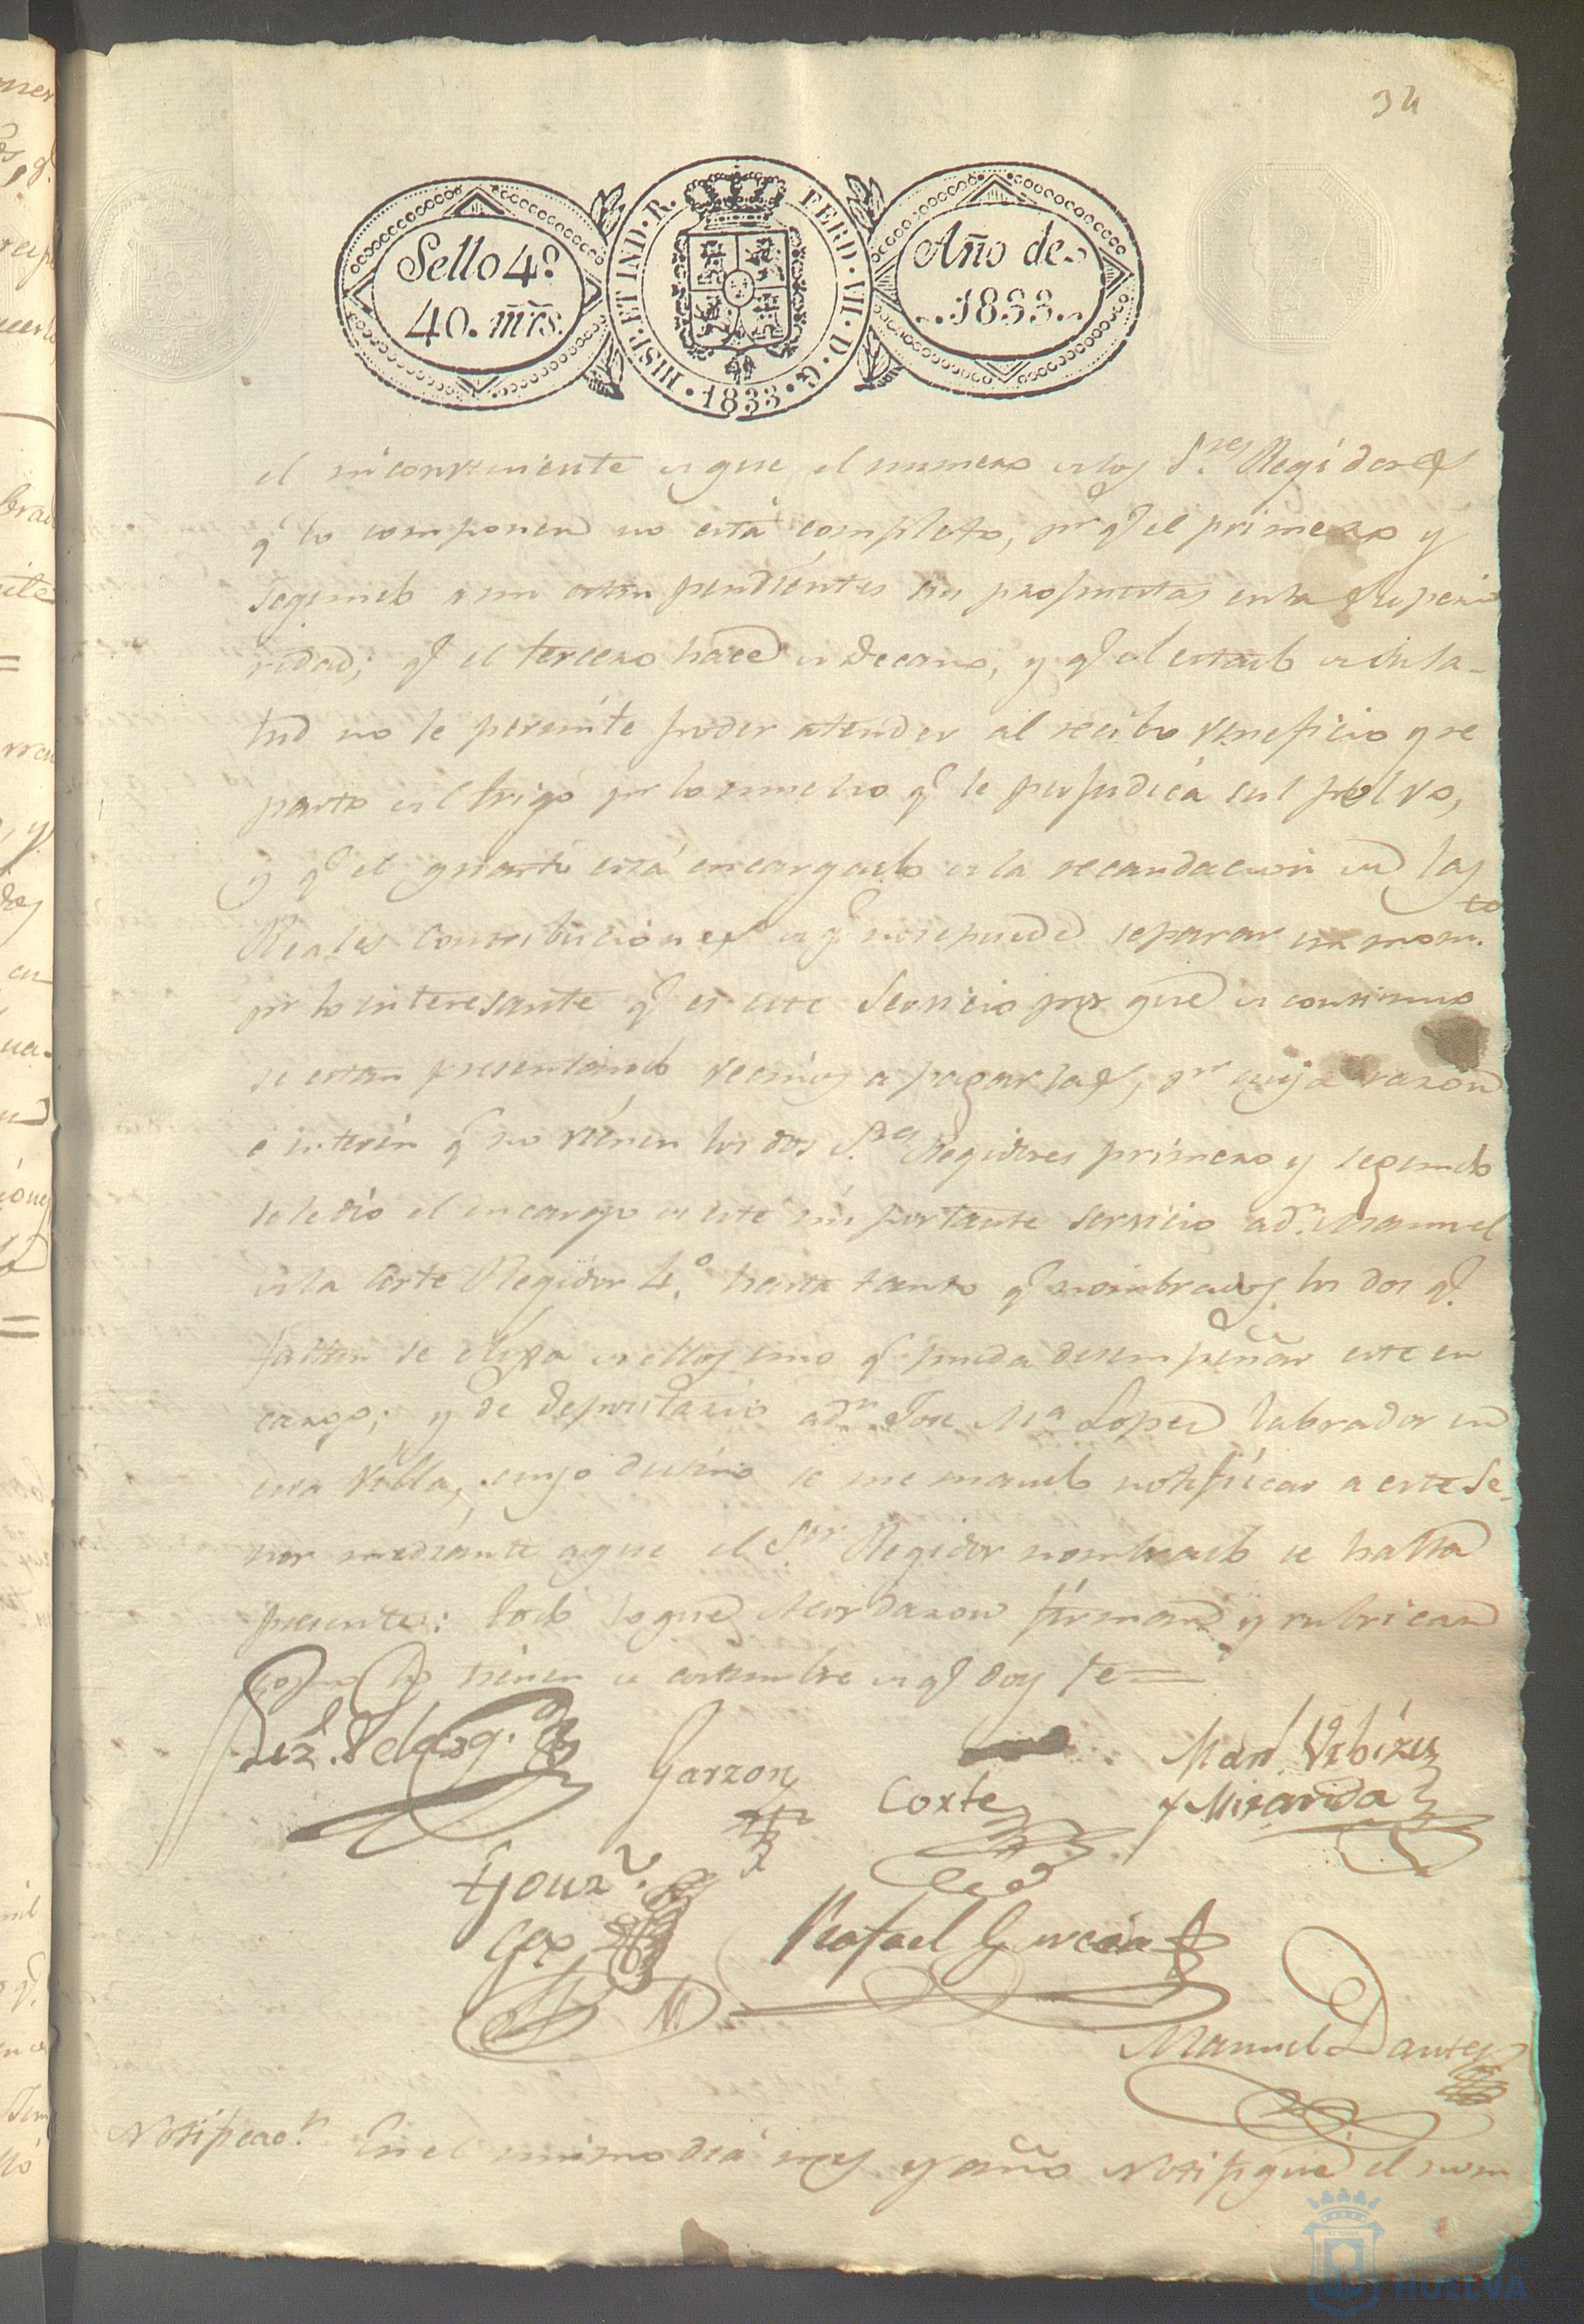 34
Sello 4º
40. mrs.
HISP. ET IND. R. FERD. VII. D. G. 1833
Año de
1833
el inconveniente de que el numero de los S.res Regidores
q.e lo componen no está completo, p.r q.e el primero y
segundo aun estan pendientes sus propuestas en la Superio
ridad; q.e el tercero hace de Decano, y q.e el estado de su sa-
lud no le permite poder atender al recibo veneficio y re
parto del trigo p.r lo mucho q.e le perjudica el polvo,
y q.e el quarto está encargado de la recaudacion de las
Reales Contribuciones de q.e no se puede separar un mom.to
p.r lo interesante q.e es este Servicio por que de continuo
se estan presentando vecinos a pagarlas, p.r cuya razon
e interin q.e no vienen los dos S.res Regidores primero y segundo
se le dió el encargo de este importante servicio a d.n Manuel
de la Corte Regidor 4.º hasta tanto q.e nombrados los dos q.e
faltan se elija de ellos uno q.e pueda desempeñar este en
cargo; y de depositario a d.n José M.a Lopez labrador en
esta Villa, cuyo destino se me mandó notificar a este Se-
ñor mediante a que el S.or Regidor nombrado se halla
presente: todo lo que Acordaron firman y rubrican
como lo tienen de costumbre de q.e doy fe=
Garzon
Corte
Man.l Vibizes
y Miranda
Gonz.z
Rafael Garcia
Manuel Dantes
Notificac.n En el mismo dia mes y año Notifiqué el nom
HUELVA